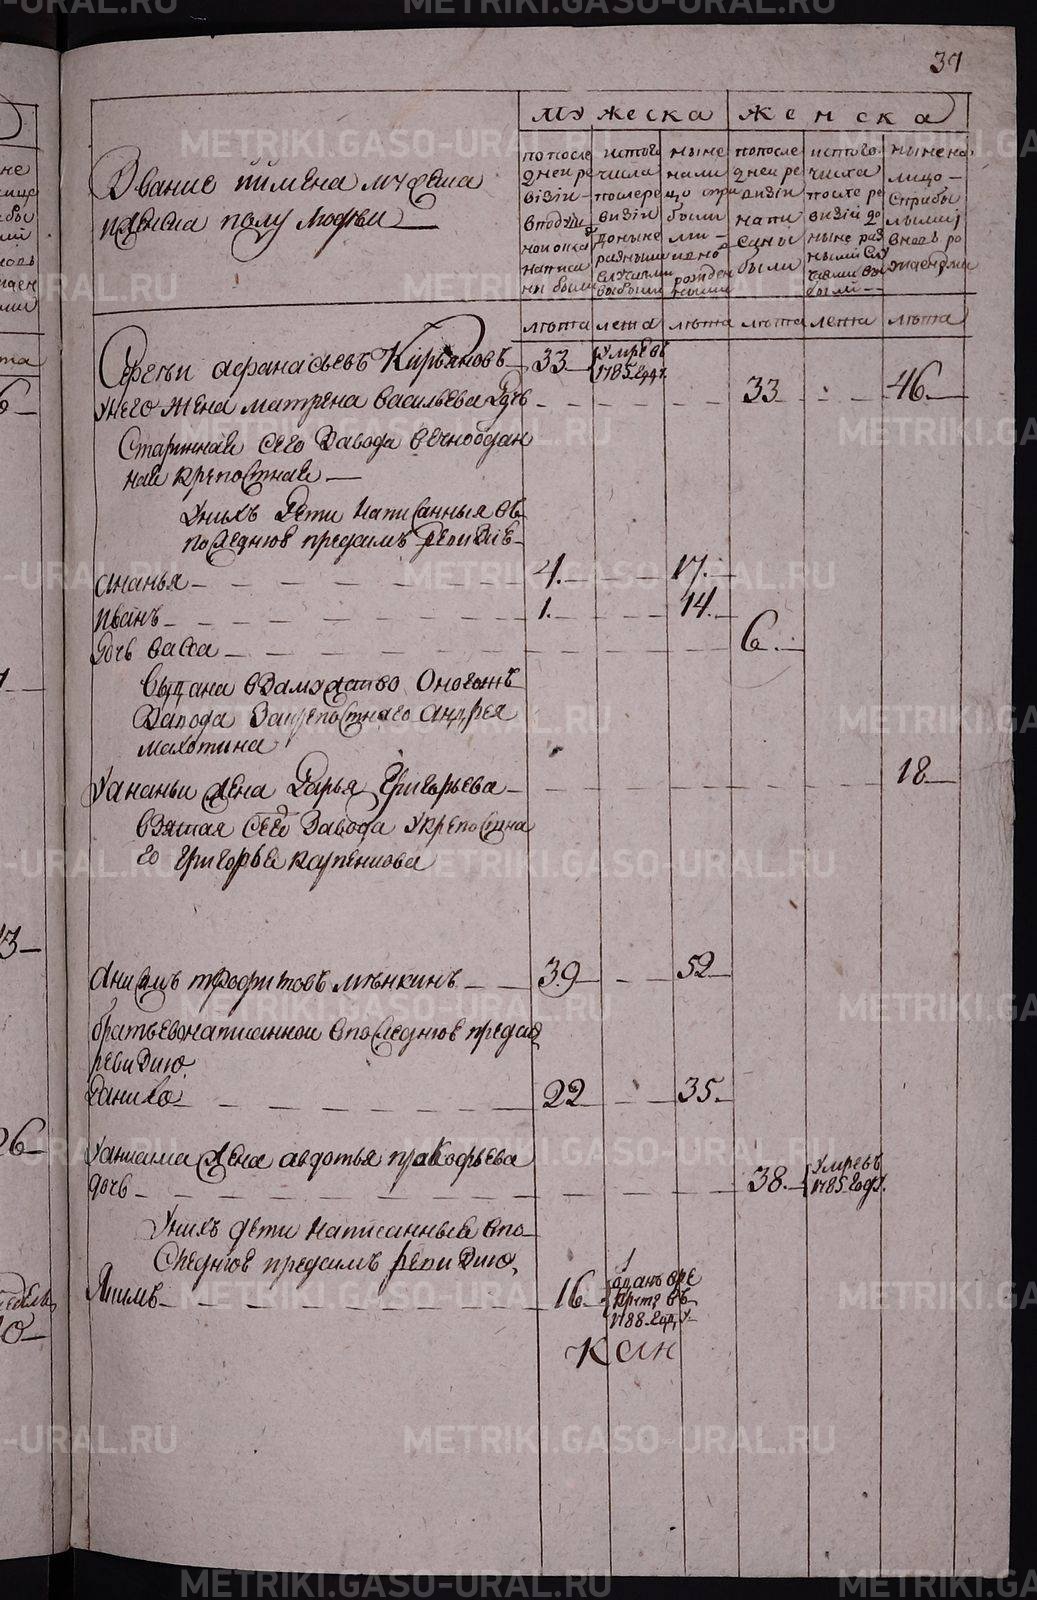 METRIKI.GASO-URAL.RU
37
мужеска
женска
Звание и имена мужеска
и женска полу людеи
попосле
днеи ре
визiи
вподуш
нои окла
написа
ны были
истого
числа
после ре
визии
доныне
разными
случаями
выбыли
ныне
нали
цо спри
были
ми
и вно
рожден
ными
попосле
дней ре
визии
напи
саны
были
истого
числа
после ре
визiй до
ныне раз
ными слу
чаями вы
были
ныне на
лицо
сприбы
лыми
вновь ро
жденными
лѣта лета лѣта лѣта лета лѣта
Сергѣи афанасьевъ Кирьяновъ 33 умревъ
1785 году.
Унего жена матрена васильева дочь 33 46
Старинная сего завода вечнобдан
ная крепостная
Унихъ дети написанныя въ
последнюю предсимъ ревизiю
ананья 4. 17.
иванъ 1. 14.
дочь васса 6.
выдана взамужство
завода закрепостнаго андрея
махотина
Уананьи жена дарья григорьева 18
взятая сего завода укрепостна
го григорья карпенцова
анисимъ трофимовъ мѣнкинъ 39 52
братьевонаписаннои впоследнюю предсию
ревизию
данило 22 35.
Уанисима жена авдотья пракофьева
дочь 38. умревъ
1785 году.
Унихъ дети написанныя впо
следнюю предсимъ ревизию
Якимъ 16 отданъ вре
круты въ
1788 году
кан